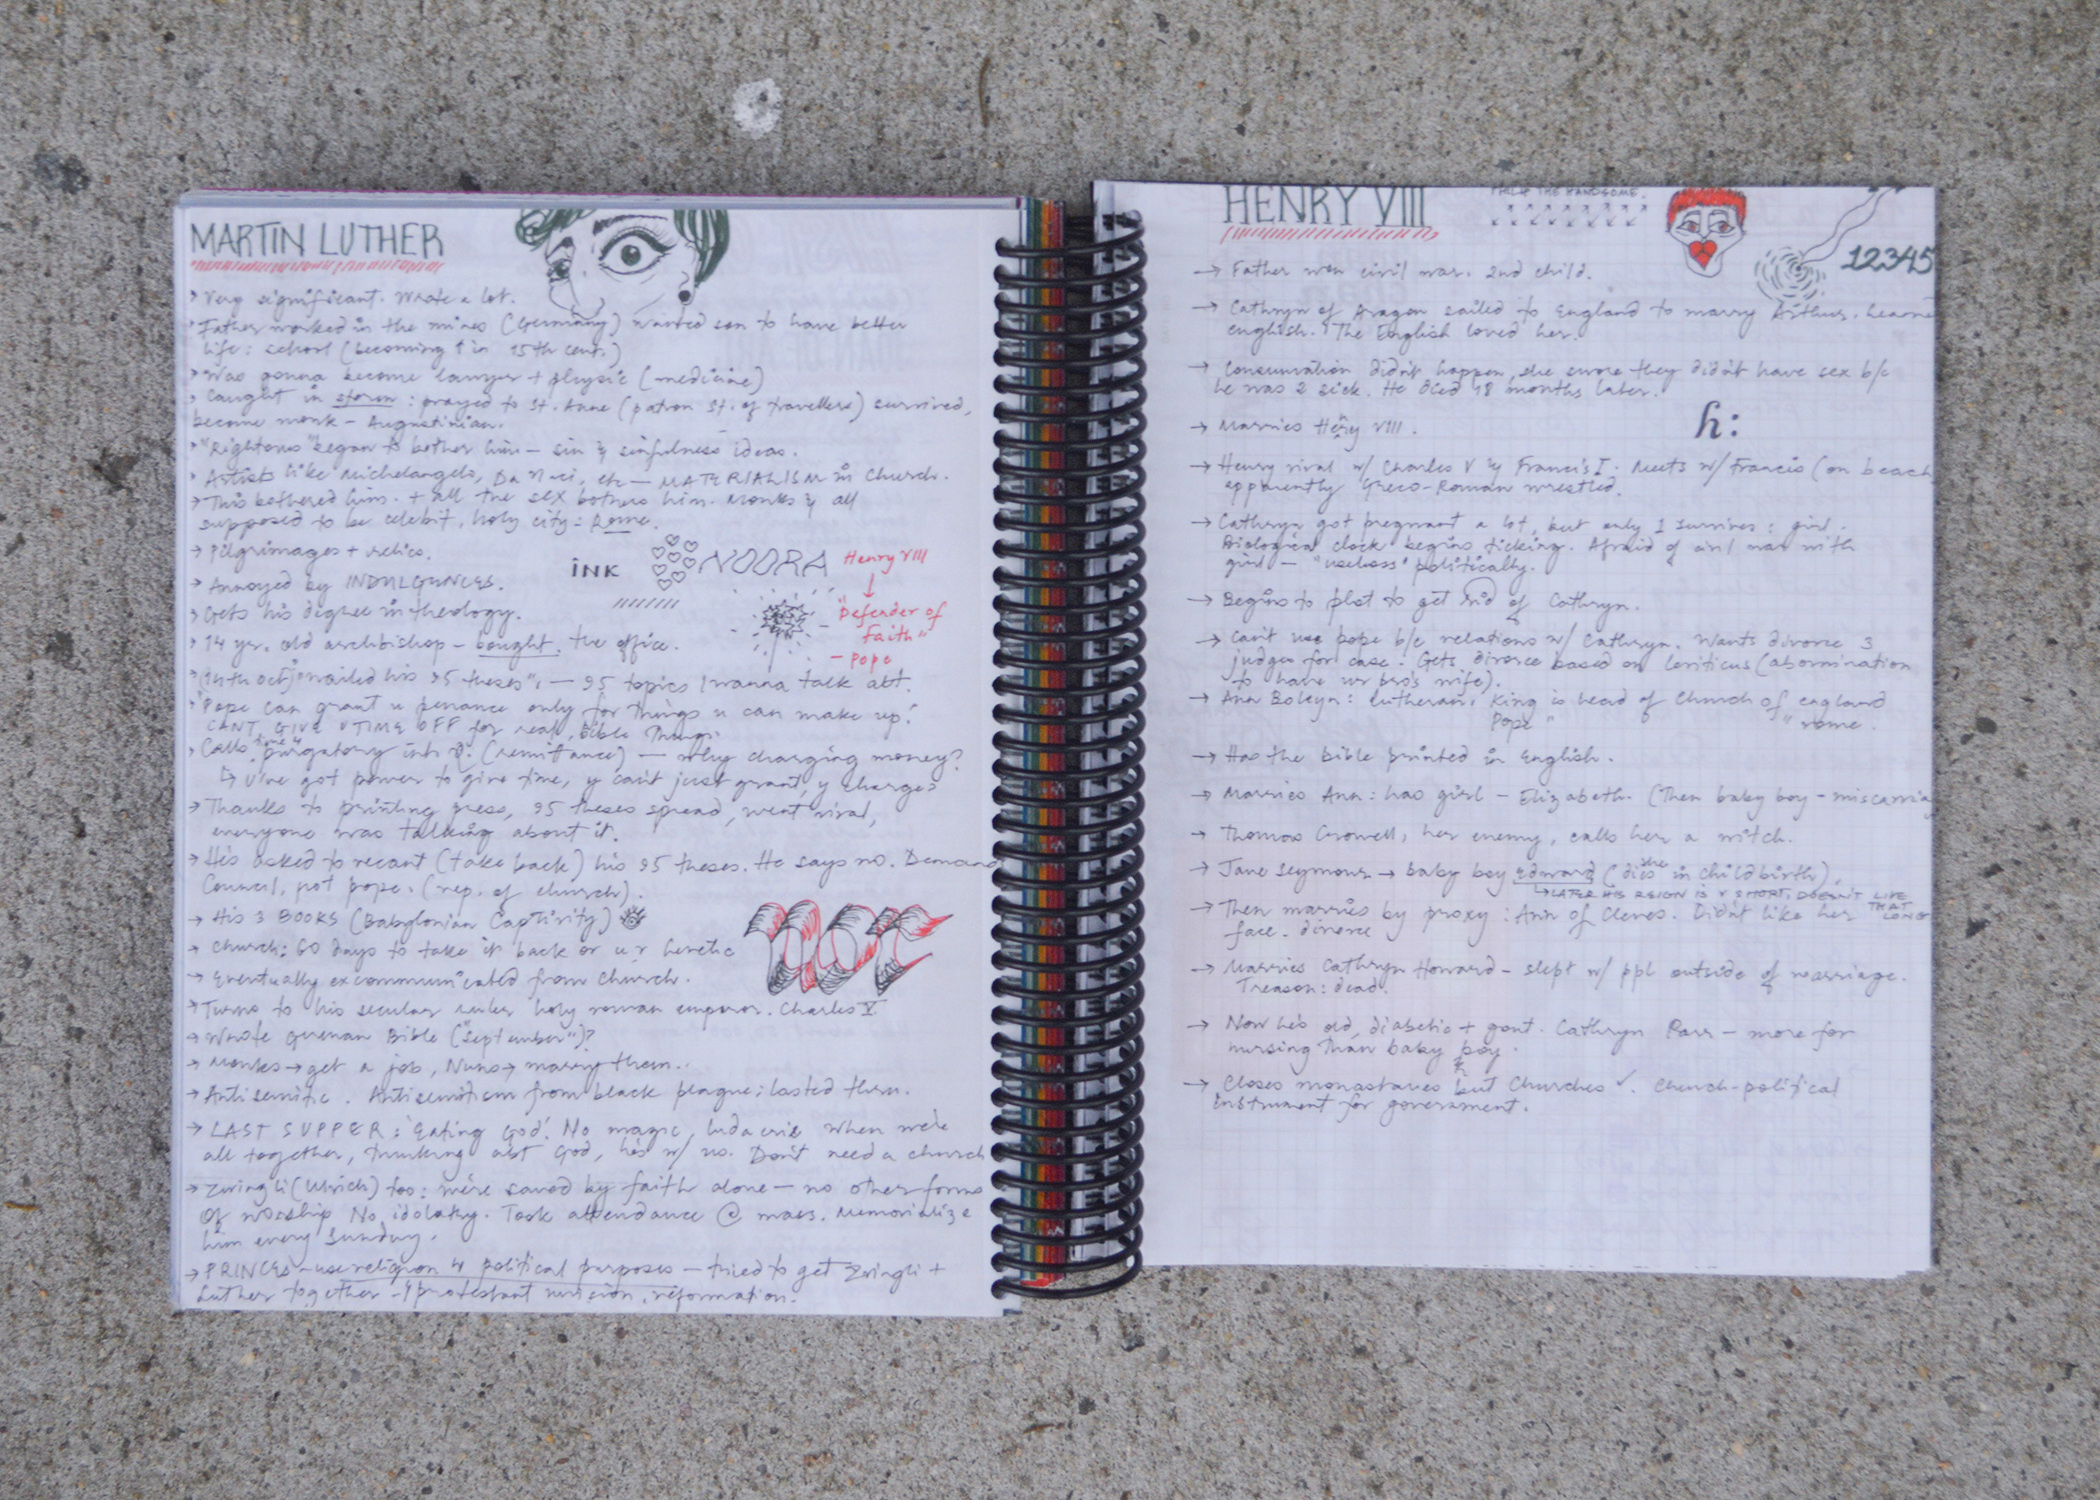 MARTIN LUTHER
→ Very significant. Wrote a lot.
→ Father worked in the mines (Germany) wanted son to have better
life: school (becoming ↑ in 15th cent.)
→ Was gonna become lawyer + physic (medicine)
→ Caught in storm: prayed to St. Anne (patron St. of travellers) survived,
become monk - Augustinian.
→ "Righteous" began to bother him - sin & sinfulness ideas.
→ Artists like Michelangelo, Da Vinci, etc — MATERIALISM in Church.
→ This bothered him. + all the sex bothers him. Monks & all
supposed to be celebit, holy city: Rome.
→ Pilgrimages + relics.
→ Annoyed by INDULGENCES.
→ Gets his degree in theology.
→ 14 yr. old archbishop - bought the office.
INK
NOORA
Henry VIII
↓
"Defender of
Faith"
- Pope
→ (14th oct) "nailed his 95 theses", — 95 topics I wanna talk abt.
→ "Pope can grant u penance only for things u can make up!
CAN'T GIVE U TIME OFF for real, Bible Things.
→ Calls "purgatory" into Q. (remittance) — why charging money?
↳ U've got power to give time, y can't just grant, y charge?
→ Thanks to printing press, 95 theses spread, went viral,
everyone was talking about it.
→ He's asked to recant (take back) his 95 theses. He says no. Demand
Council, not pope. (rep. of church).
→ His 3 BOOKS (Babylonian Captivity)
→ Church: 60 days to take it back or u r heretic
→ Eventually excommunicated from Church.
→ Turns to his secular ruler holy roman emperor. Charles V
→ Wrote German Bible ("September")?
→ Monks → get a job, Nuns → marry them..
→ Antisemitic. Antisemitism from black plague; lasted thru.
→ LAST SUPPER: Eating God! No magic, when we're
all together, thinking abt God, he's w/ us. Don't need a church
→ Zwingli (Ulrich) too: we're saved by faith alone — no other forms
of worship. No idolatry. Took attendance @ mass. Memorialize
him every Sunday.
→ PRINCES - use religion 4 political purposes — tried to get Zwingli +
Luther together - protestant reformation.
HENRY VIII
PHILIP THE HANDSOME.
12345
→ Father won civil war. 2nd child.
→ Cathryn of Aragon sailed to England to marry Arthur. Learne
english. The English loved her.
→ Consumation didn't happen, she swore they didn't have sex b/c
he was 2 sick. He died 18 months later.
h:
→ Marries Henry VIII.
→ Henry rival w/ Charles V & Francis I. Meets w/ Francis (on beach
apparently Greco-Roman wrestled.
→ Cathryn got pregnant a lot, but only 1 survives: girl.
Biological clock begins ticking. Afraid of civil war with
girl — "useless" politically.
→ Begins to plot to get rid of Cathryn.
→ Can't use pope b/c relations w/ Cathryn. Wants divorce 3
judges for case. Gets divorce based on leviticus (abomination
to have ur bro's wife).
→ Ann Boleyn: Lutheran. King is head of Church of england
Pope " " rome.
→ Has the Bible printed in English.
→ Marries Ann: has girl - Elizabeth. (Then baby boy - miscarria
→ Thomas Crowell, her enemy, calls her a witch.
→ Jane Seymour → baby boy edward (she dies in childbirth).
↳ LATER HIS REIGN IS V SHORT, DOESN'T LIVE
THAT
LONG
→ Then marries by proxy: Ann of Cleves. Didn't like her
face. divorce
→ Marries Cathryn Howard - slept w/ ppl outside of marriage.
Treason: dead.
→ Now he's old, diabetic + gout. Cathryn Parr — more for
nursing than baby boy.
→ Closes monastaries but Churches ✓. Church-political
instrument for government.